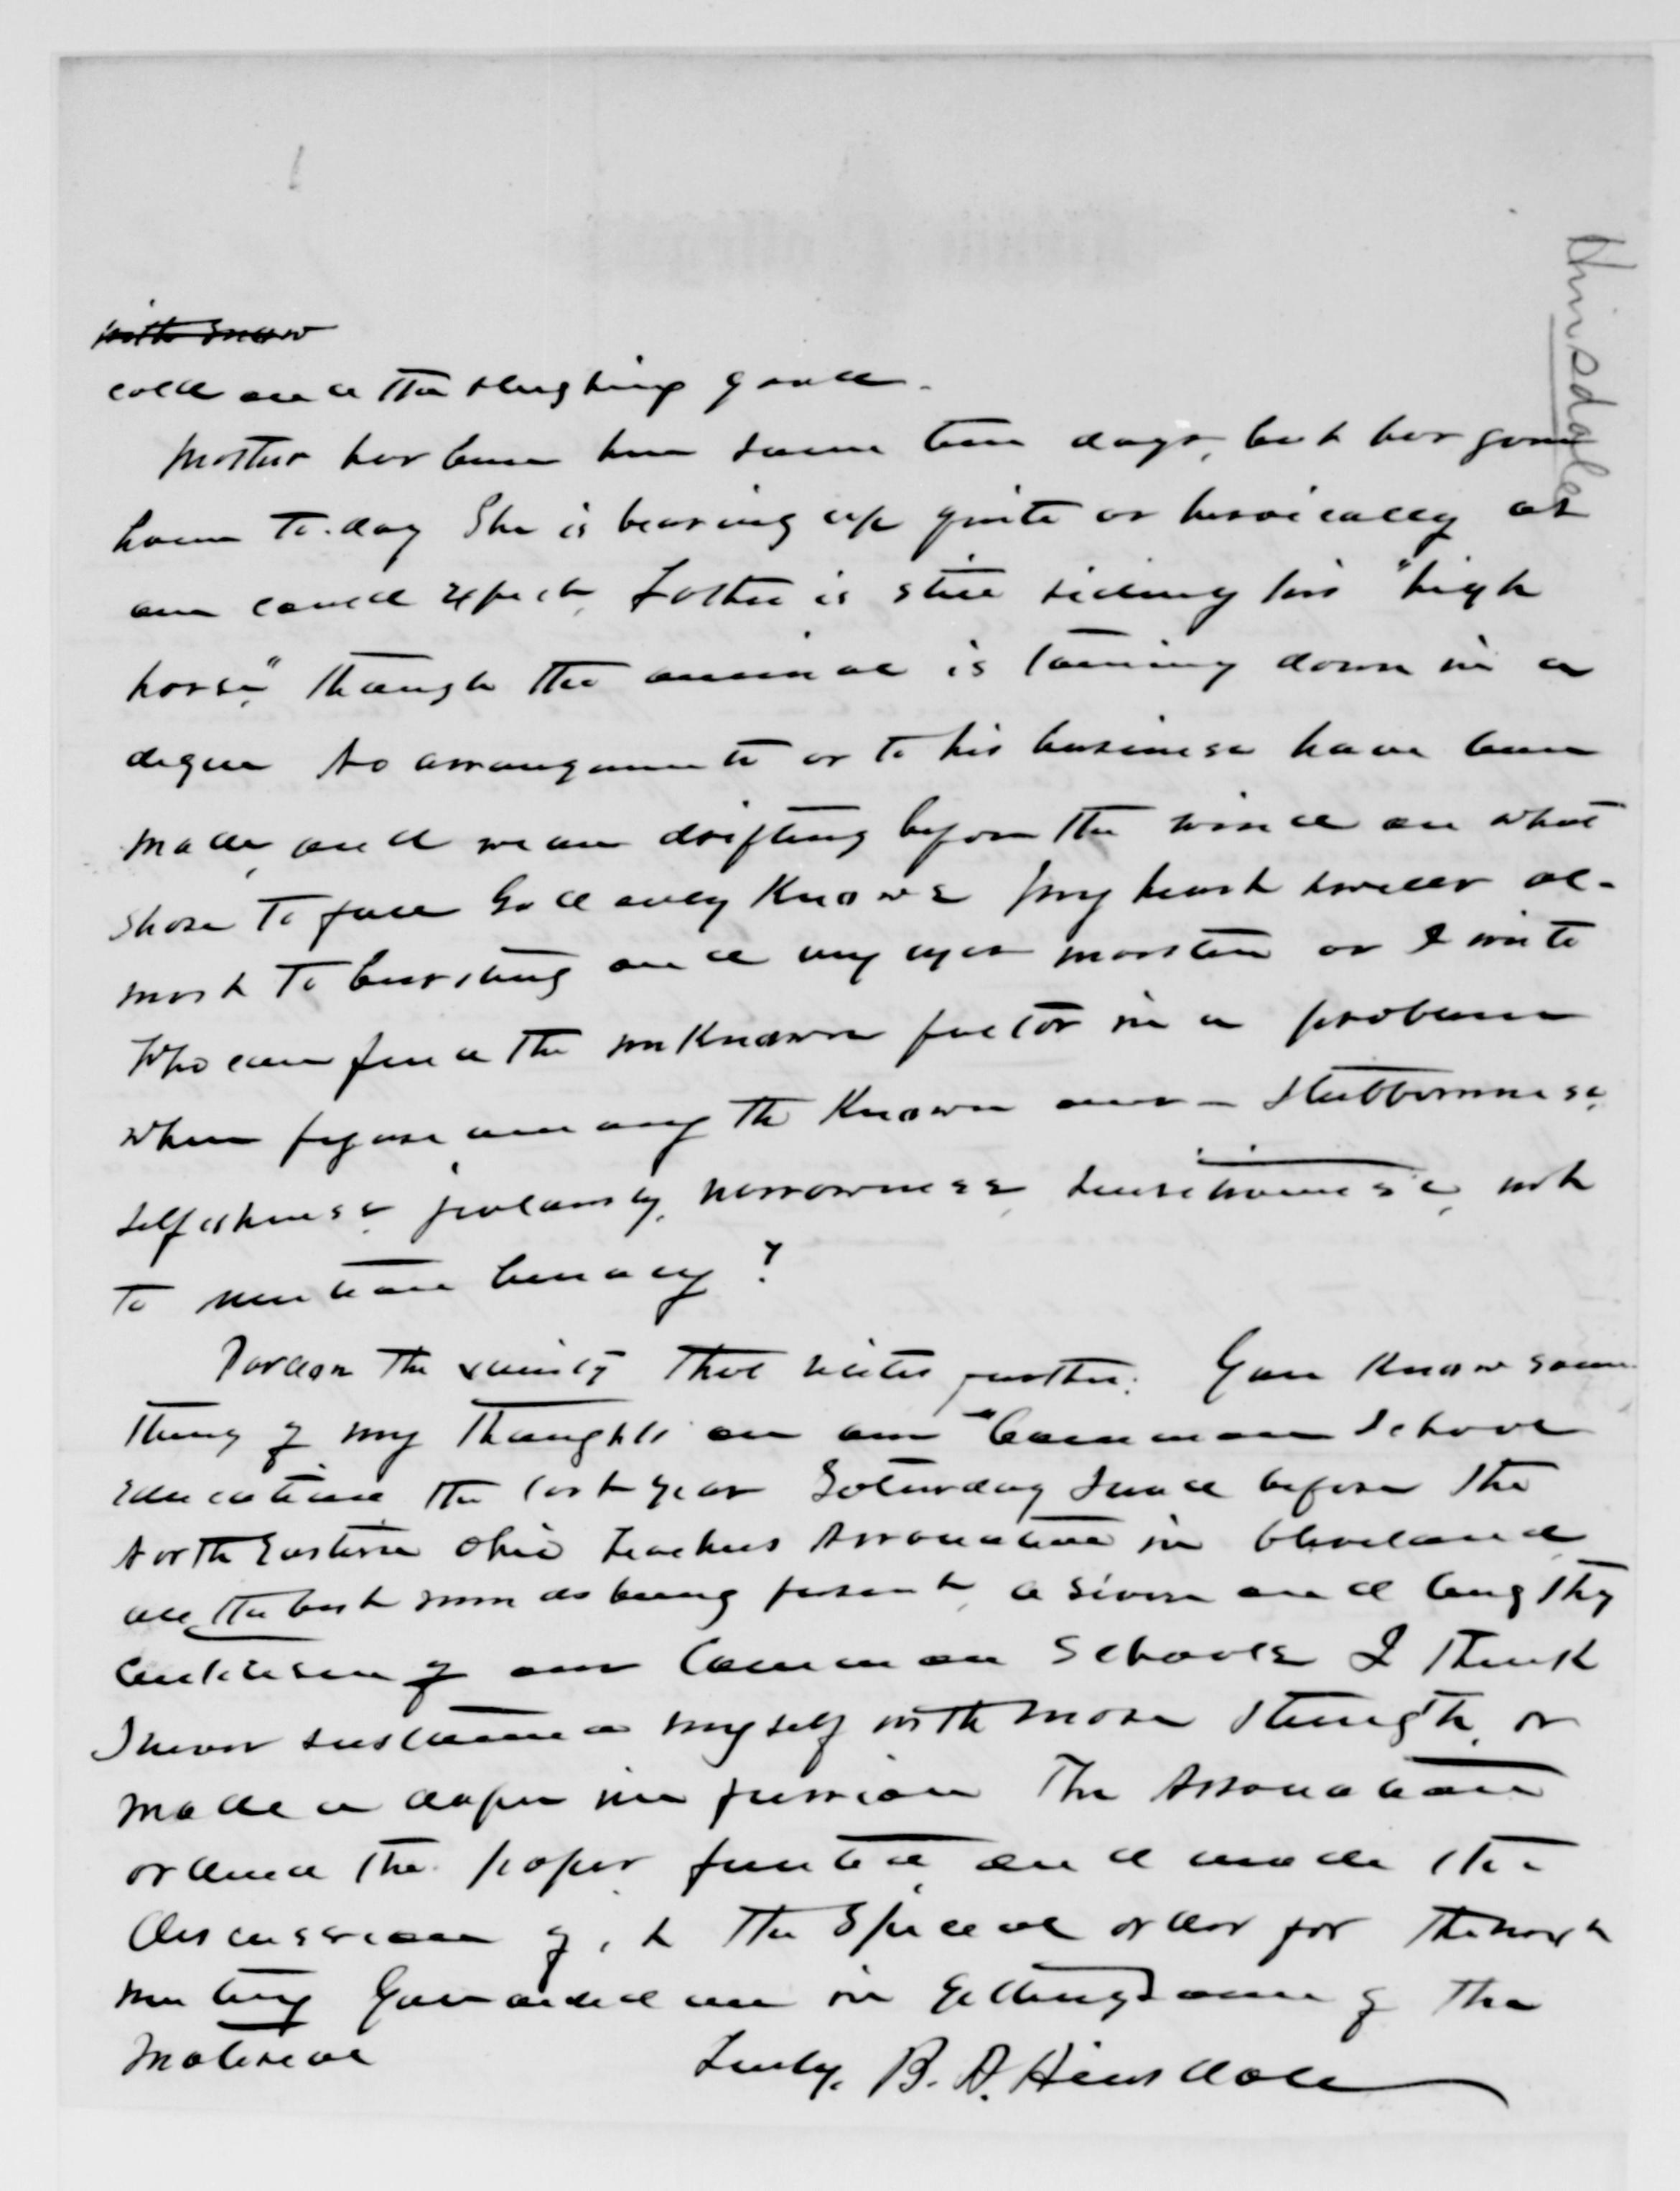 Hinsdale
with snow
cold and the sleighing good.
Mother has been here some ten days, but has gone
home to-day She is bearing up quite as heroically as
one could expect, Father is still riding his "high
horse," though the animal is taming down in a
degree No arrangements as to his business have been
made, and we are drifting before the wind on what
shore to fall God only knows My heart swells al-
most to bursting and my eyes moisten as I write
Who can find the unknown factor in a problem
when figure among the known ones — Stubbornness,
selfishness, jealousy, narrowness, not
to mention lunacy?
Pardon the vanity that writes further. You know some
thing of my thoughts on our "Common School
Education the last year Saturday I read before the
North Eastern Ohio Teachers Association in Cleveland,
all the best minds being present, a severe and lengthy
criticism of our Common Schools I think
I never sustained myself with more strength, or
made a deeper impression The Association
ordered the paper printed, and made the
discussion of it the Special order for the next
meeting You aided me in getting some of the
material
Truly, B. A. Hinsdale